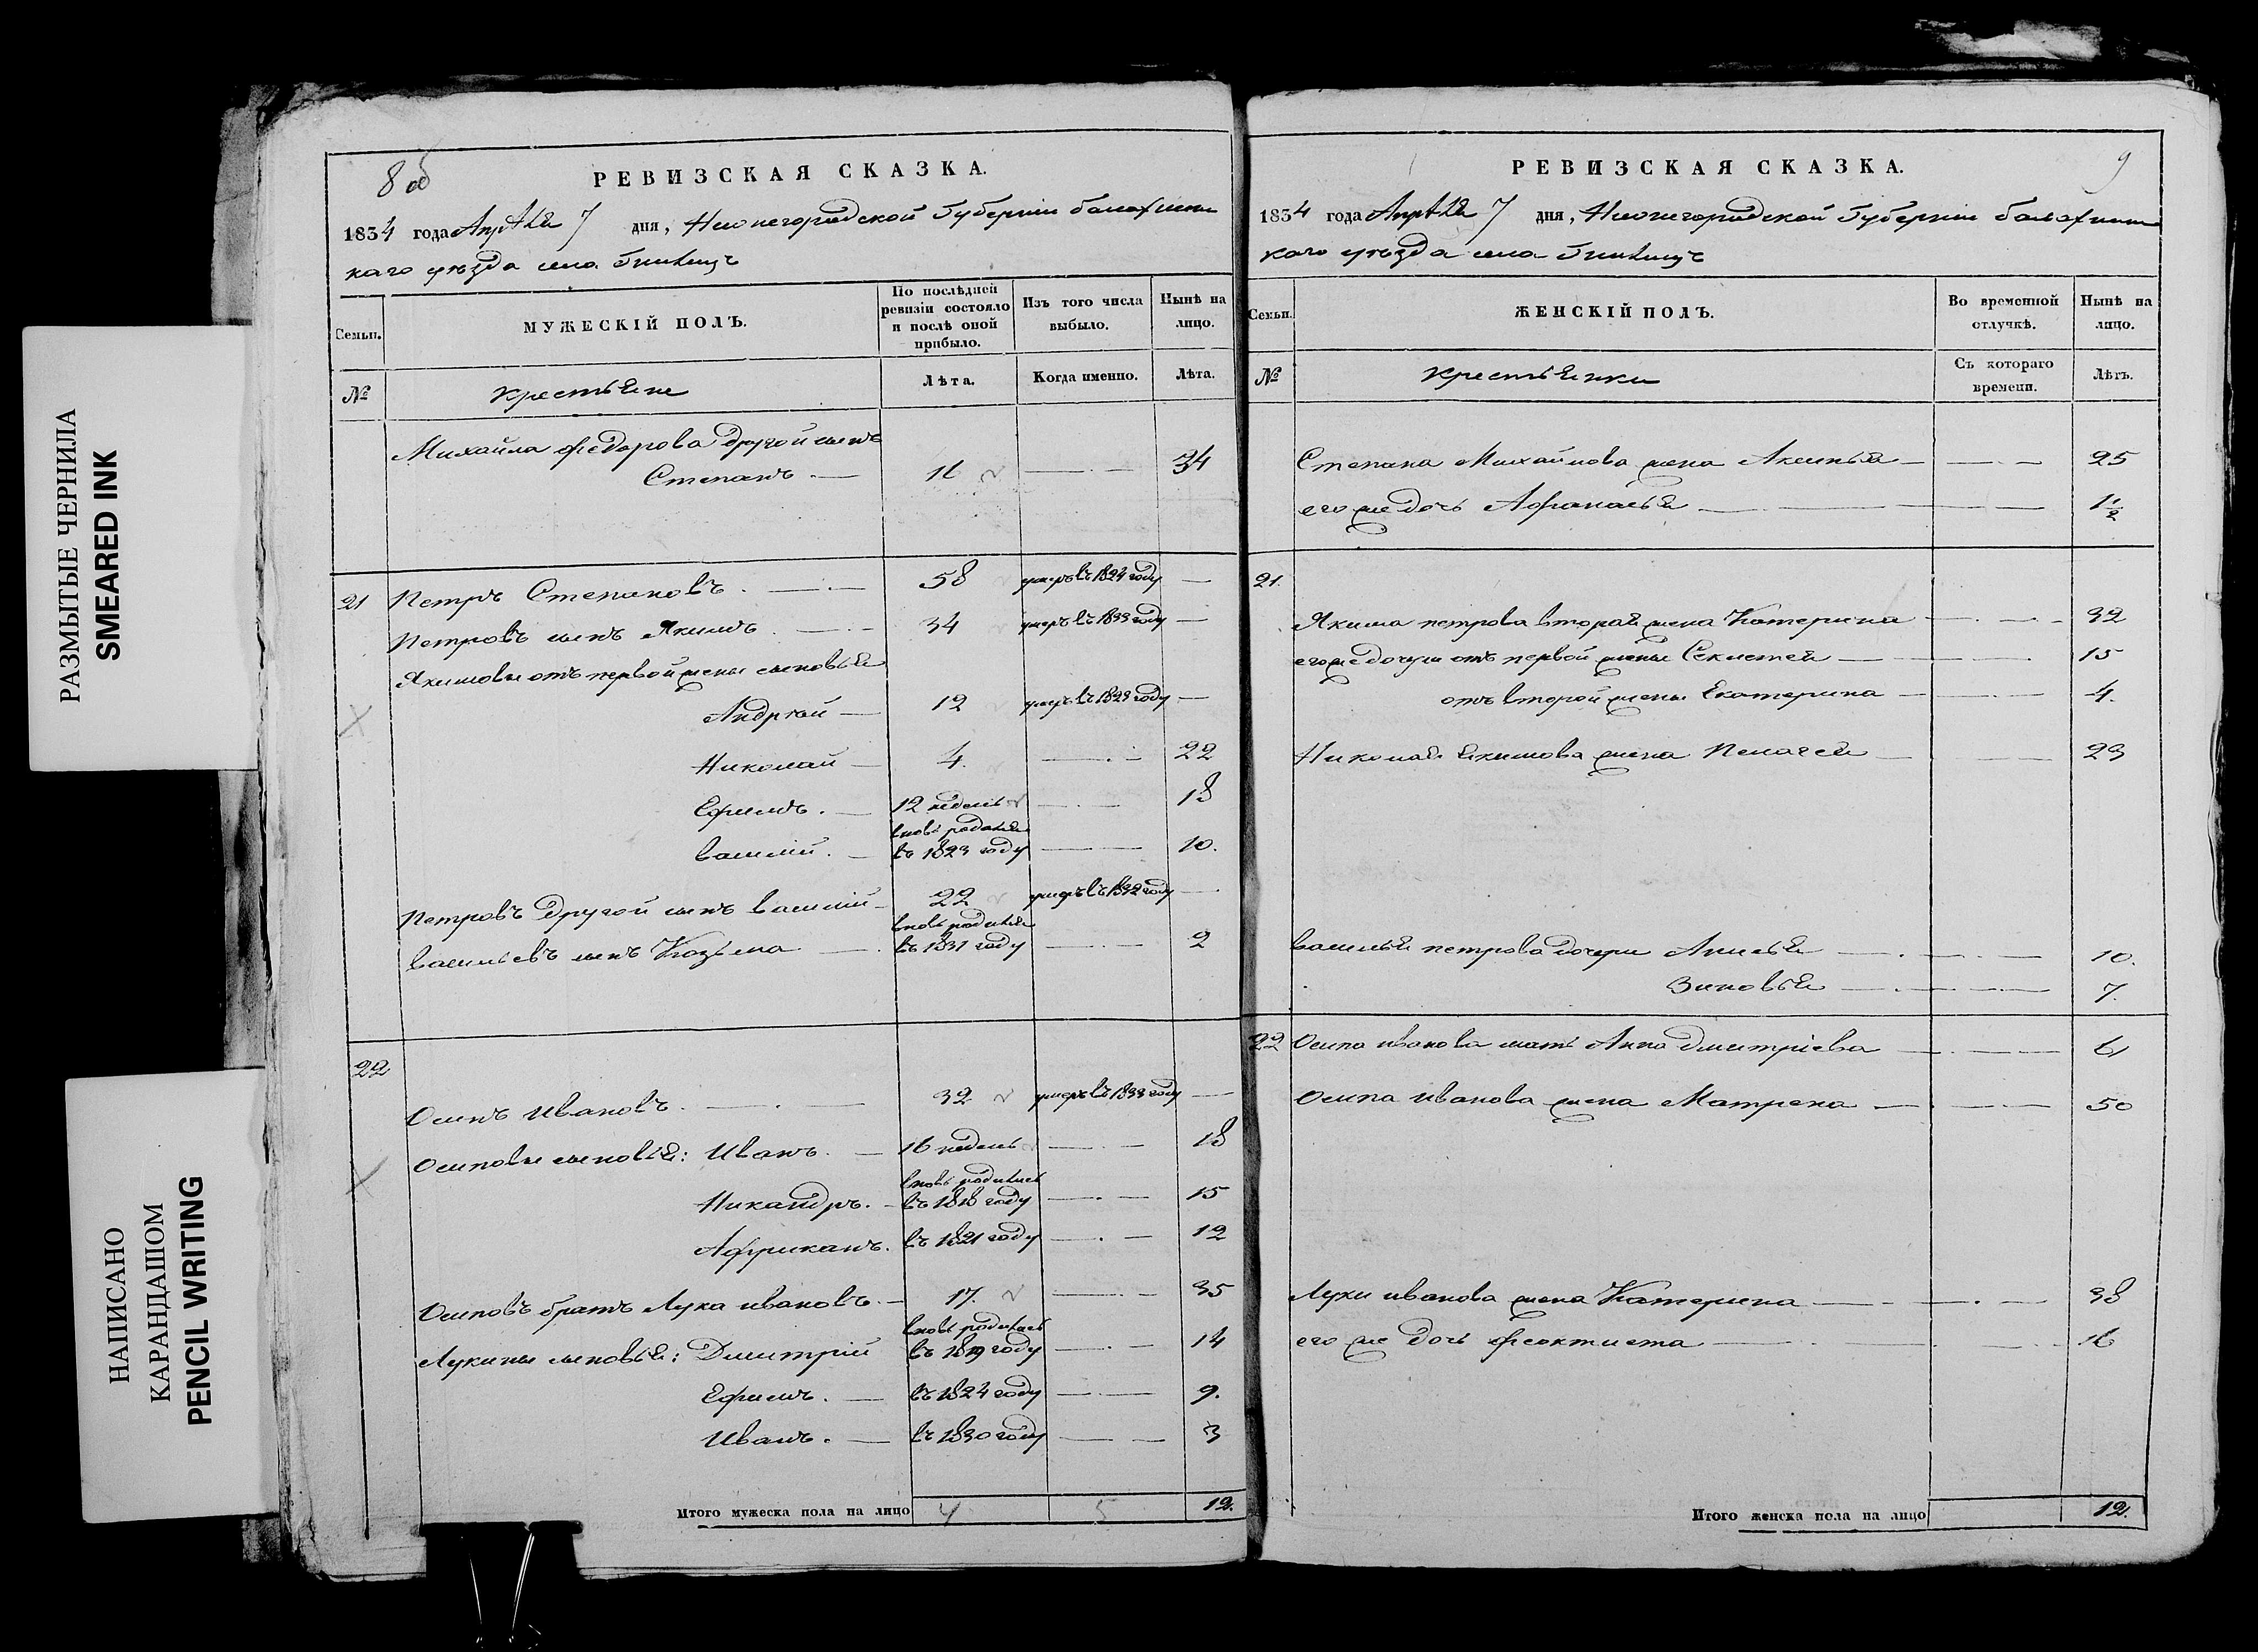 РАЗМЫТЫЕ ЧЕРНИЛА
SMEARED INK
НАПИСАНО
КАРАНДАШОМ
PENCIL WRITING
8 об
РЕВИЗСКАЯ СКАЗКА.
1834 года Апрѣля 7 дня, Нижегородской Губерніи балахнин
каго уѣзда села
Семьи. МУЖЕСКІЙ ПОЛЪ. По послѣдней ревизіи состояло и послѣ оной прибыло. Изъ того числа выбыло. Нынѣ на лицо.
№ крестьяне Лѣта. Когда именно. Лѣта.
Михайла федорова другой сынъ
Степанъ. 16 34
21 Петръ Степановъ. 58 умеръ въ 1824 году
Петровъ сынъ Якимъ. 34 умеръ въ 1833 году
Якимовы отъ первой жены сыновья
Андрей 12 умеръ въ 1823 году
Николай 4. 22
Ефимъ. 12 недель 18
вновь родился
василій. въ 1823 году 10.
Петровъ другой сынъ василій 22 умеръ въ 1832 году
вновь родился
васильевъ сынъ Козьма въ 1831 году 2
22
Осипъ Ивановъ. 32 умеръ въ 1833 году
Осиповы сыновья: Иванъ. 16 недель 18
вновь родились
Никандръ. въ 1818 году 15
Африканъ. въ 1821 году 12
Осиповъ братъ Лука ивановъ. 17. 35
вновь родились
Лукины сыновья: Дмитрій въ 1819 году 14
Ефимъ. въ 1824 году 9.
Иванъ. въ 1830 году 3
Итого мужеска пола на лицо 4 5 12.
9
РЕВИЗСКАЯ СКАЗКА.
1834 года Апрѣля 7 дня, Нижегородской Губерніи балахнин
каго уѣзда села
Семьи. ЖЕНСКІЙ ПОЛЪ. Во временной отлучкѣ. Нынѣ на лицо.
№ крестьянки Съ котораго времени. Лѣтъ.
Степана Михайлова жена Аксинья 25
его же дочь Афанасья 1 1/2
21.
Якима петрова вторая жена Катерина 32
его же дочери отъ первой жены Секлетея 15
отъ второй жены Екатерина 4.
Николая Якимова жена Пелагея 23
василья петрова дочери Анисья 10.
Зиновья 7.
22 Осипа иванова мать Анна Дмитріева 61
Осипа иванова жена Матрена 50
Луки иванова жена Катерина 38
его же дочь феоктиста 16
Итого женска пола на лицо 12.